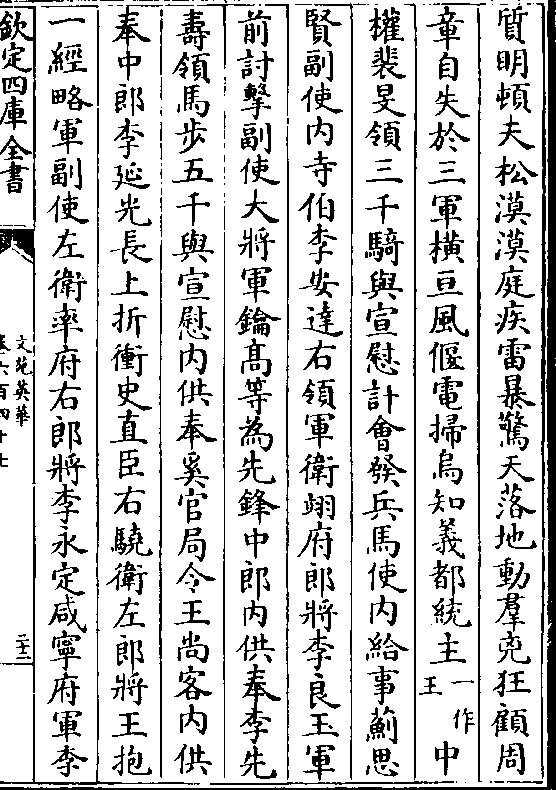 質明頓夫松漠漠庭疾雷暴驚天落地動羣兇狂顧周
章自失於三軍橫亘風偃電掃烏知義都統主一作王中
權裴旻領三千騎與宣慰計會發兵馬使內給事薊思
賢副使內寺伯李安達右領軍衛翊府郎將李良玉軍
前討擊副使大將軍鑰高等為先鋒中郎內供奉李先
壽領馬步五千與宣慰內供奉奚官局令王尚客內供
奉中郎李延光長上折衝史直臣右驍衛左郎將王抱
一經略軍副使左衛率府右郎將李永定咸寧府軍李
欽定四庫全書
文苑英華
卷六百四十七
二十二